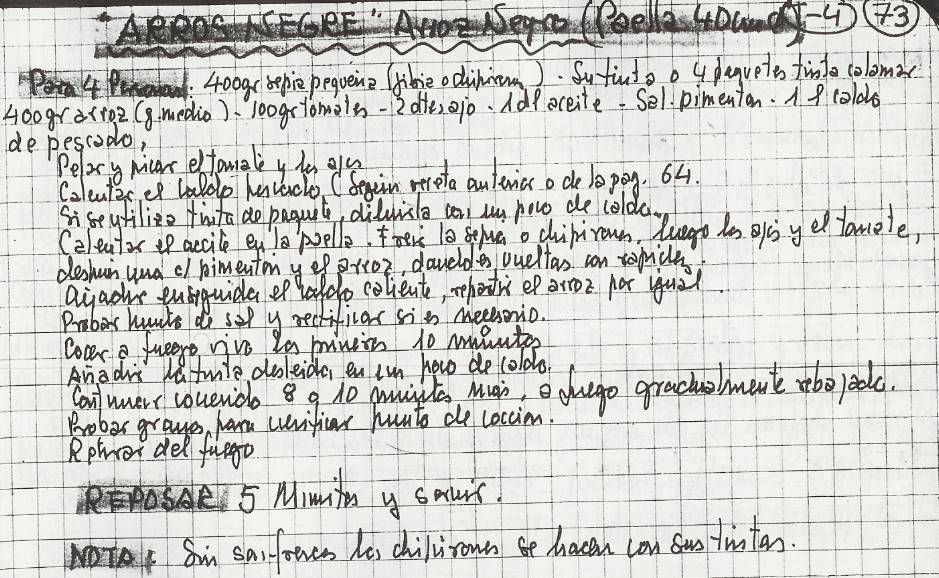 "ARROS NEGRE" Arroz Negro (Paella 40 cmd) -4 73
Para 4 Personas. 400gr sepia pequeña (jibia o chipiron) - Su tinta o 4 paquetes tinta calamar
400gr arroz (g. medio) - 100gr tomates - 2 dtes ajo - 1 dl aceite - Sal. pimenton. 1 l caldo
de pescado,
Pelar y picar el tomate y los ajos
Calentar el caldo pescado (Según receta anterior o de la pag. 64.
Si se utiliza tinta de paquete, diluirla con un poco de caldo.
Calentar el aceite en la paella. Freir la sepia o chipirones, luego los ajos y el tomate,
despues una c/ pimentón y el arroz, dandoles vueltas con rapidez.
Añadir enseguida el caldo caliente, repartir el arroz por igual.
Probar punto de sal y rectificar si es necesario.
Cocer a fuego vivo los primeros 10 minutos
Añadir la tinta desleida, en un poco de caldo.
Continuar cociendo 8 a 10 minutos más, a fuego gradualmente rebajado.
Probar grano, para verificar punto de coccion.
Retirar del fuego
REPOSAR 5 Minutos y servir.
NOTA: Sin las chipirones se hacen con sus tintas.